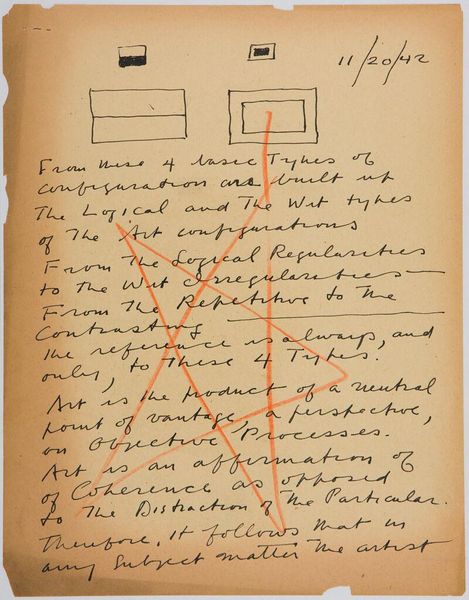 11/20/42
From these 4 basic Types of
configuration are built up
The Logical and The Wit types
of The Art configurations
From The Logical Regularities
to the Wit Irregularities—
From The Repetitive to The
Contrasting
the reference is always, and
only, to These 4 Types.
Art is the product of a neutral
point of vantage, a perspective,
on Objective Processes.
Art is an affirmation of
of Coherence as opposed
to The Distraction of The Particular.
Therefore, it follows that in
any Subject matter The artist